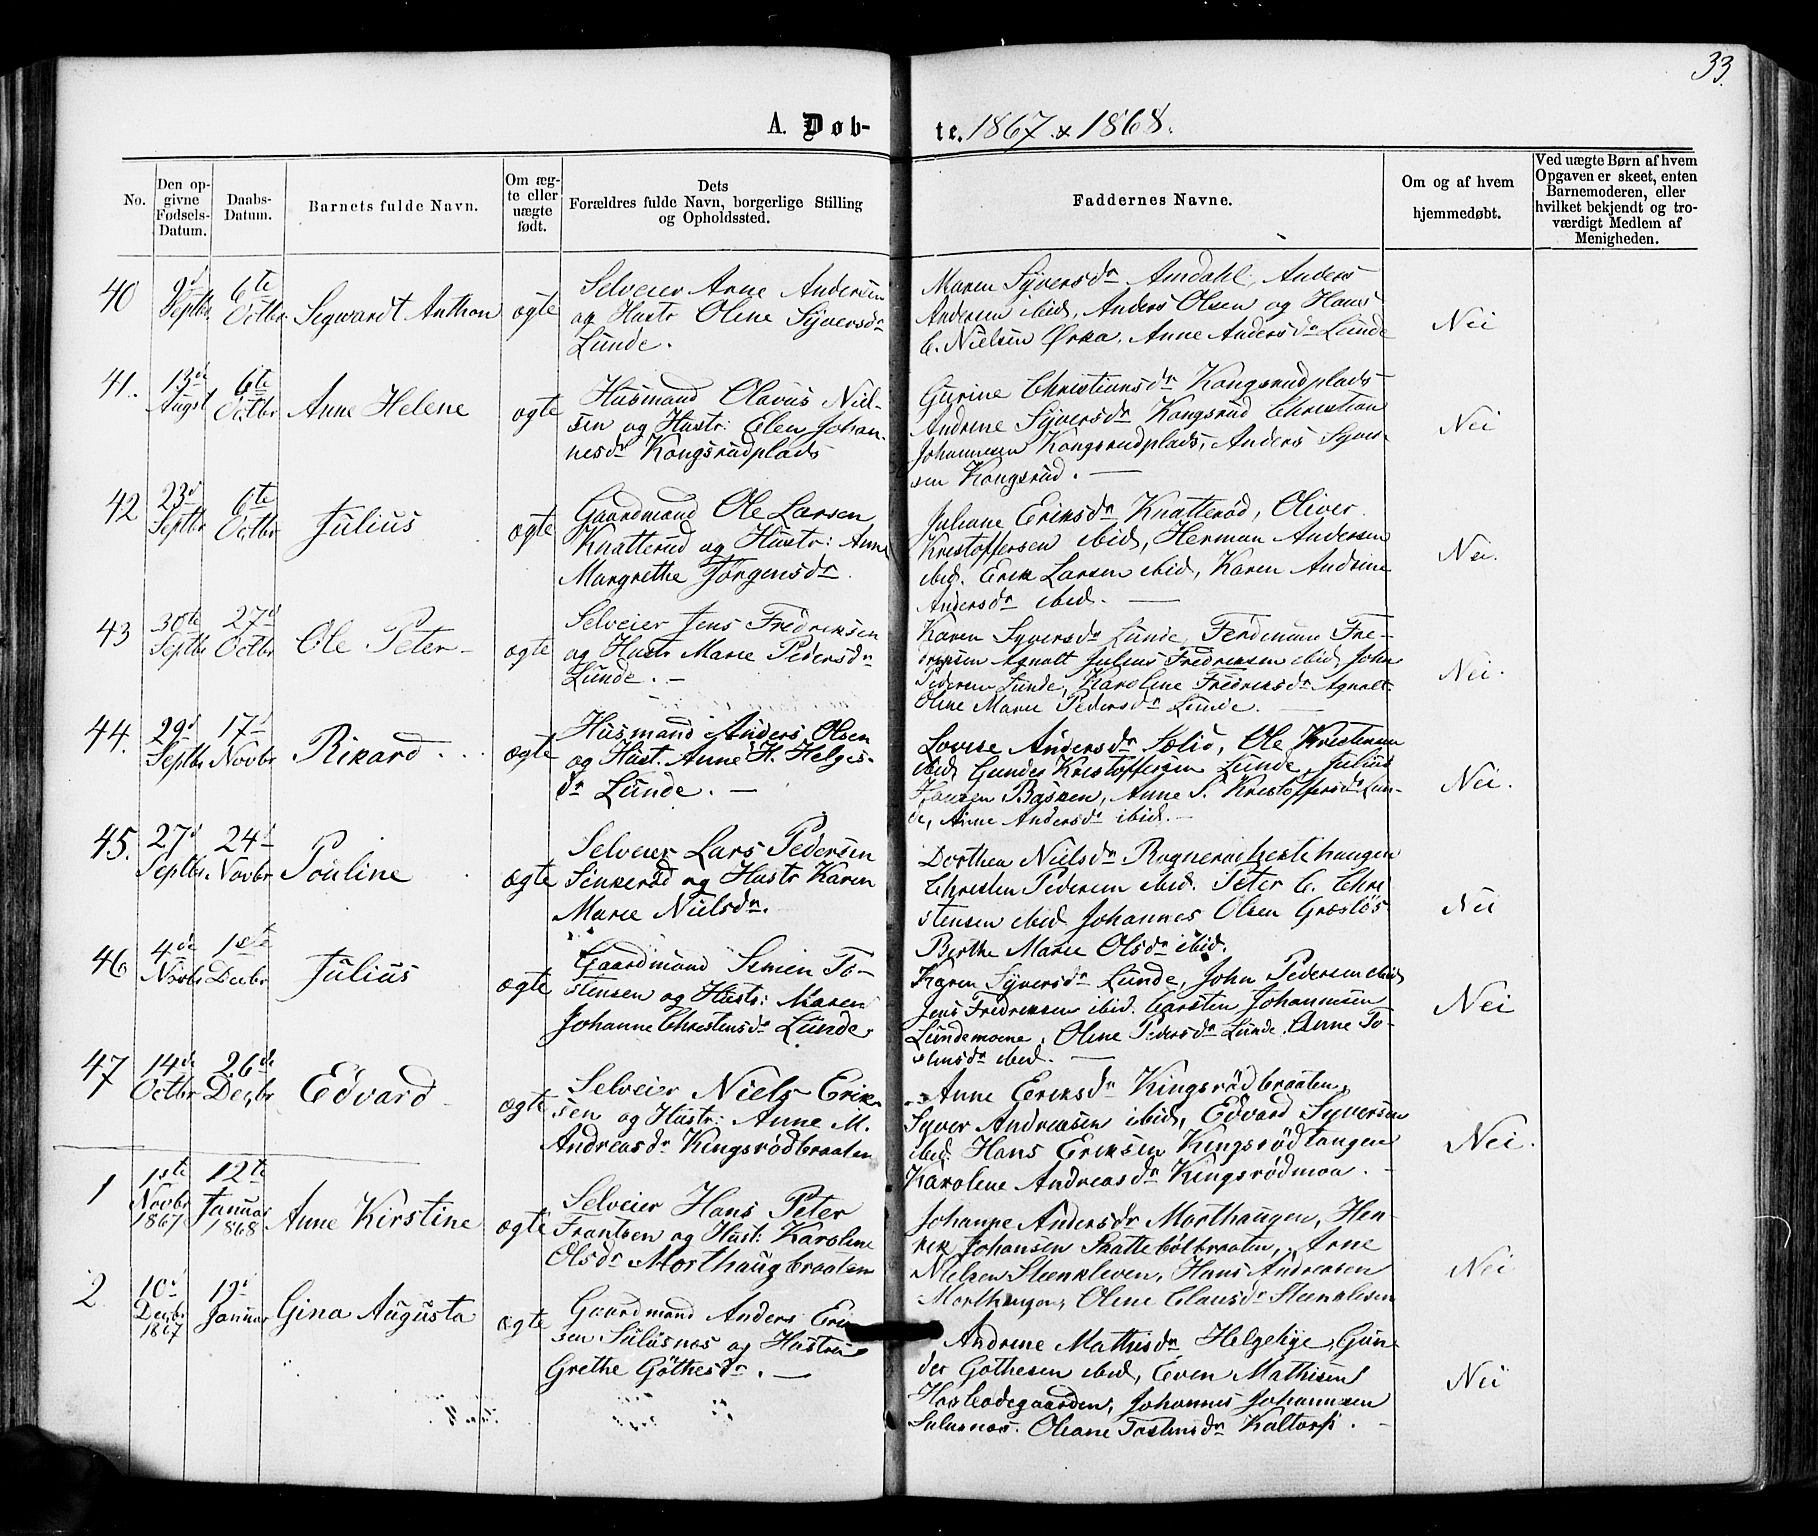 33
A. Døb-
te. 1867 & 1868.
No.
Den op-
givne
Fødsels-
Datum.
Daabs-
Datum.
Barnets fulde Navn.
Om æg-
te eller
uægte
født.
Dets
Forældres fulde Navn, borgerlige Stilling
og Opholdssted.
Faddernes Navne.
Om og af hvem
hjemmedøbt.
Ved uægte Børn af hvem
Opgaven er skeet, enten
Barnemoderen, eller
hvilket bekjendt og tro-
værdigt Medlem af
Menigheden.
40
9d
Septbr
6te
Octbr
Segwardt Anthon
ægte
Selveier Arne Andersen
og Hustr Oline Syversdr
Lunde.
Maren Syversdr Amdahl, Anders
Andersen ibid, Anders Olsen og Hans
C. Nielsen Ørka, Anne Andersdr Lunde
Nei
41.
13de
Augst
6te
Octbr
Anne Helene
ægte
Husmand Olavus Niel-
sen og Hustr: Elen Johan-
nesdr Kongsrudplads
Gurine Christiansdr Kongsrudplads
Andrene Syversdr Kongsrud Christian
Johannesen Kongsrudplads, Anders Syver-
sen Kongsrud.
Nei
42
23d
Septbr
6te
Octbr
Julius
ægte
Gaardmand Ole Larsen
Knatterud og Hustr: Anne
Margrethe Jørgensdr
Juliane Eriksdr Knatterød, Oliver
Kristoffersen ibid, Herman Andersen
ibid. Erik Larsen ibid, Karen Andrine
Andersdr ibid.
Nei.
43
30te
Septbr
27d
Octbr
Ole Peter
ægte
Selveier Jens Fredriksen
og Hustr Marie Pedersdr
Lunde.
Karen Syversdr Lunde, Ferdinann Fre-
driksen Agnalt Julius Fredriksen ibid, John
Pedersen Lunde, Karoline Fredriksdr Agnalt
Oline Marie Pedersdr Lunde.
Nei.
44.
29d
Septbr
17d
Novbr
Rikard
ægte
Husmand Anders Olsen
og Hust. Anne H. Helges-
dr Lunde.
Lovise Andersdr Solid, Ole Kristensen
ibid Gunder Kristoffersen Lunde, Julius
Hansen Basken, Anne S. Kristoffersdr Lun-
de, Anne Andersdr ibid.
Nei.
45.
27d
Septbr
24d
Novbr
Pouline
ægte
Selveier Lars Pedersen
Sinkerød og Hustr Karen
Marie Nielsdr.
Dorthea Nielsdr
Christen Pedersen ibid. Peter C. Chri
stensen ibid Johannes Olsen Græsløs
Berthe Marie Olsdr ibid.
Nei
46
4de
Novbr
1ste
Decbr
Julius
ægte
Gaardmand Simen To-
stensen og Hustr: Maren
Johanne Christensdr Lunde.
Karen Syversdr Lunde, John Pedersen ibid
Jens Fredriksen ibid. Carsten Johannesen
Lundemoene, Oline Pedersdr Lunde. Anne To-
stensdr ibid.
Nei
47
14de
Octbr
26de
Decbr
Edvard
ægte
Selveier Niels Erik-
sen og Hustr: Anne M.
Andreasdr Kingsrødbraaten
Anne Eriksdr Kingsrødbraaten,
Syver Andreasen ibid, Edvard Syversen
ibid Hans Eriksen Kingsrødtangen
Karolene Andreasdr Kingsrødmoa.
Nei.
1
1ste
Novbr
1867
12te
Januar
1868
Anne Kirstine
ægte
Selveier Hans Peter
Frantsen og Hust: Karoline
Olsdr Morthaugbraaten
Johanne Andersdr Morthaugen, Hen-
rik Johansen Skattebølbraaten, Arne
Nielsen Steenkleven, Hans Andreasen
Morthaugen, Oline Clausdr Steenkleven
Nei
2
10d
Decbr
1867
19d
Januar
Gina Augusta
ægte
Gaardmand Anders Erik-
sen Sulusnæs og Hustru
Grethe Gøthesdr.
Andrine Mathisdr Helgebye, Gun-
der Gøthesen ibid, Even Mathisen
Haslodegaarden, Johannes Johannesen
Sulusnæs. Oliane Tostensdr Kaltorp.
Nei